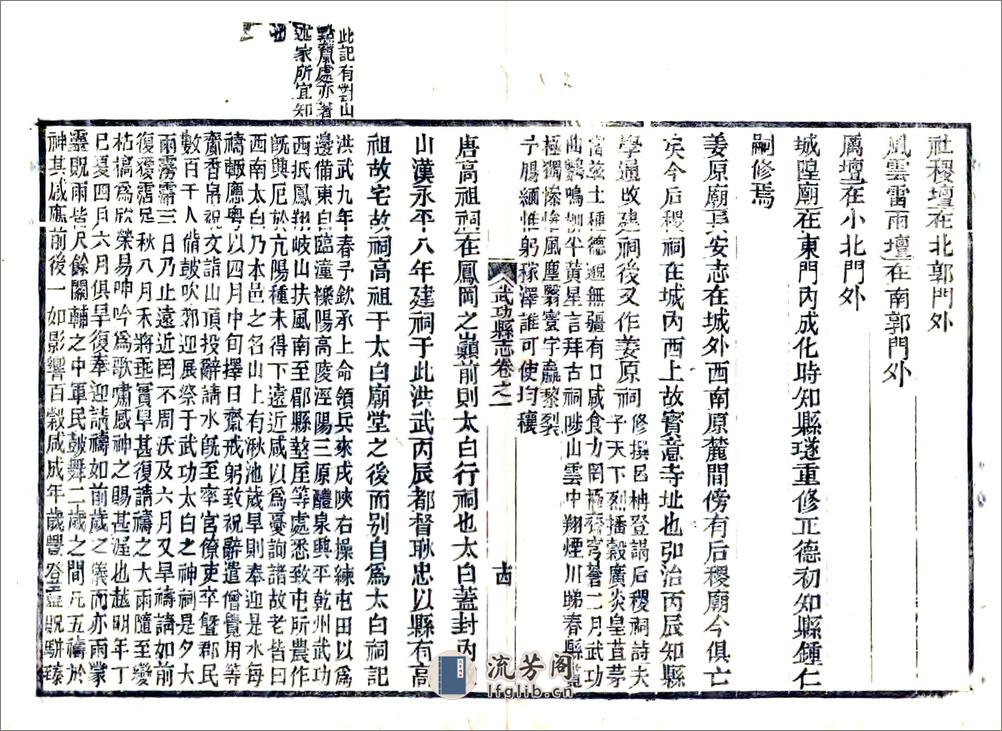 社稷壇在北郭門外
風雲雷雨壇在南郭門外
厲壇在小北門外
城隍廟在東門內成化時知縣璲重修正德初知縣鍾仁
嗣修焉
姜原廟長安志在城外西南原麓間傍有后稷廟今俱亡
矣今后稷祠在城內西上故寶意寺址也弘治丙辰知縣
學通改建祠後又作姜原祠
修撰呂柟登謁后稷祠詩天
子天下烈播穀廣炎皇苴茅
啻茲土種德邈無疆有口咸食力罔極齊穹蒼二月武功
牛黃星言拜古祠陟山雲中翔煙川睇春縣
極獨慘惟風塵翳寰宇羸黎裂
子腸緬惟躬稼澤誰可使均穰
武功縣志卷之一
十四
唐高祖祠在鳳岡之巔前則太白行祠也太白蓋封內之
山漢永平八年建祠于此洪武丙辰都督耿忠以縣有高
祖故宅故祠高祖于太白廟堂之後而別自為太白祠記
洪武九年春予欽承上命領兵來戍陝右操練屯田以為
邊備東自臨潼櫟陽高陵涇陽三原醴泉興平乾州武功
西抵鳳翔岐山扶風南至郿縣盩厔等處悉致屯所農作
既興厄於亢陽種未得下遠近咸以為憂詢諸故老皆曰
西南太白乃本邑之名山上有湫池歲旱則奉迎是水每
禱輙應粵以四月中旬擇日齋戒躬致祝辭遣僧覺用等
齎香帛祝文詣山頂投辭請水既至率官僚吏卒暨郡民
數百千人偕鼓吹郊迎展祭于武功太白之神祠是夕大
雨霶霈三日乃止遠近罔不周沃及六月又旱禱請如前
復獲霑足秋八月禾將垂實旱甚復請禱之大雨隨至變
枯槁為欣榮易呻吟為歌嘯感神之賜甚渥也越明年丁
巳夏四月六月俱旱復奉迎請禱如前歲之儀而亦雨蒙
靈既雨皆尺餘關輔之中軍民鼓舞二歲之間凡五禱於
神其感應前後一如影響百穀咸成年歲豐登靈貺駢臻
此記有對山
點竄處亦著
述家所宜知
流芳阁
lfglib.cn